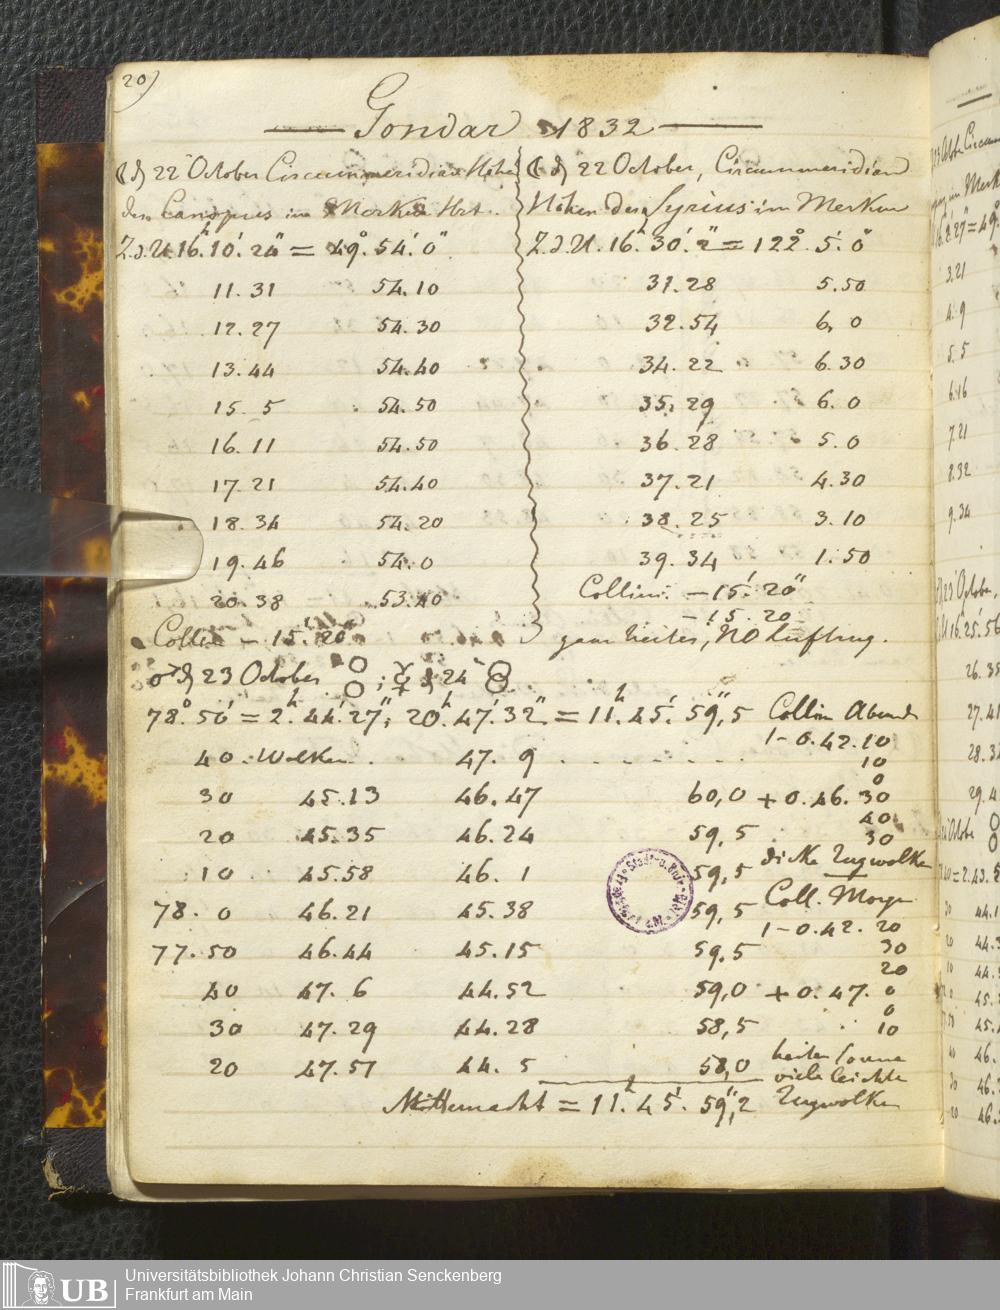 20)
Gondar 1832
☾ d 22 October Circummeridian Höhen
des Canopus im Merkur Hrt.
Z.d.U. 16h. 10'. 24" = 49°. 54'. 0"
11. 31 54. 10
12. 27 54. 30
13. 44 54. 40
15. 5 54. 50
16. 11 54. 50
17. 21 54. 40
18. 34 54. 20
19. 46 54. 0
20. 38 53. 40
Collim. — 15'. 20"
☾ d 22 October, Circummeridian
Höhen des Syrius im Merkur
Z.d.U. 16h. 30'. 2" = 122°. 5'. 0"
31. 28 5. 50
32. 54 6. 0
34. 22 6. 30
35. 29 6. 0
36. 28 5. 0
37. 21 4. 30
38. 25 3. 10
39. 34 1. 50
Collim. — 15'. 20"
— 15. 20
ganz heiter, NO Luftzug.
♂ d 23 October ; ☿ d 24
78°. 50' = 2h. 44'. 27"; 20h. 47'. 32" = 11h. 45'. 59",5 Collim Abends
1 — 0. 42. 10
40. Wolken 47. 9 10
0
30 45. 13 46. 47 60,0 + 0. 46. 30
40
20 45. 35 46. 24 59,5 30
10 45. 58 46. 1 59,5 dicke Zugwolken
78. 0 46. 21 45. 38 59,5 Coll. Morgen
1 — 0. 42. 20
77. 50 46. 44 45. 15 59,5 30
20
40 47. 6 44. 52 59,0 + 0. 47. 0
0
30 47. 29 44. 28 58,5 10
20 47. 51 44. 5 58,0 heitere Sonne
viele leichte
Mitternacht = 11h. 45'. 59",2 Zugwolken
3.21
4. 9
5. 5
6.46
7.21
8.32
9.34
26. 35
27. 41
28. 3
29. 4
UB
Universitätsbibliothek Johann Christian Senckenberg
Frankfurt am Main